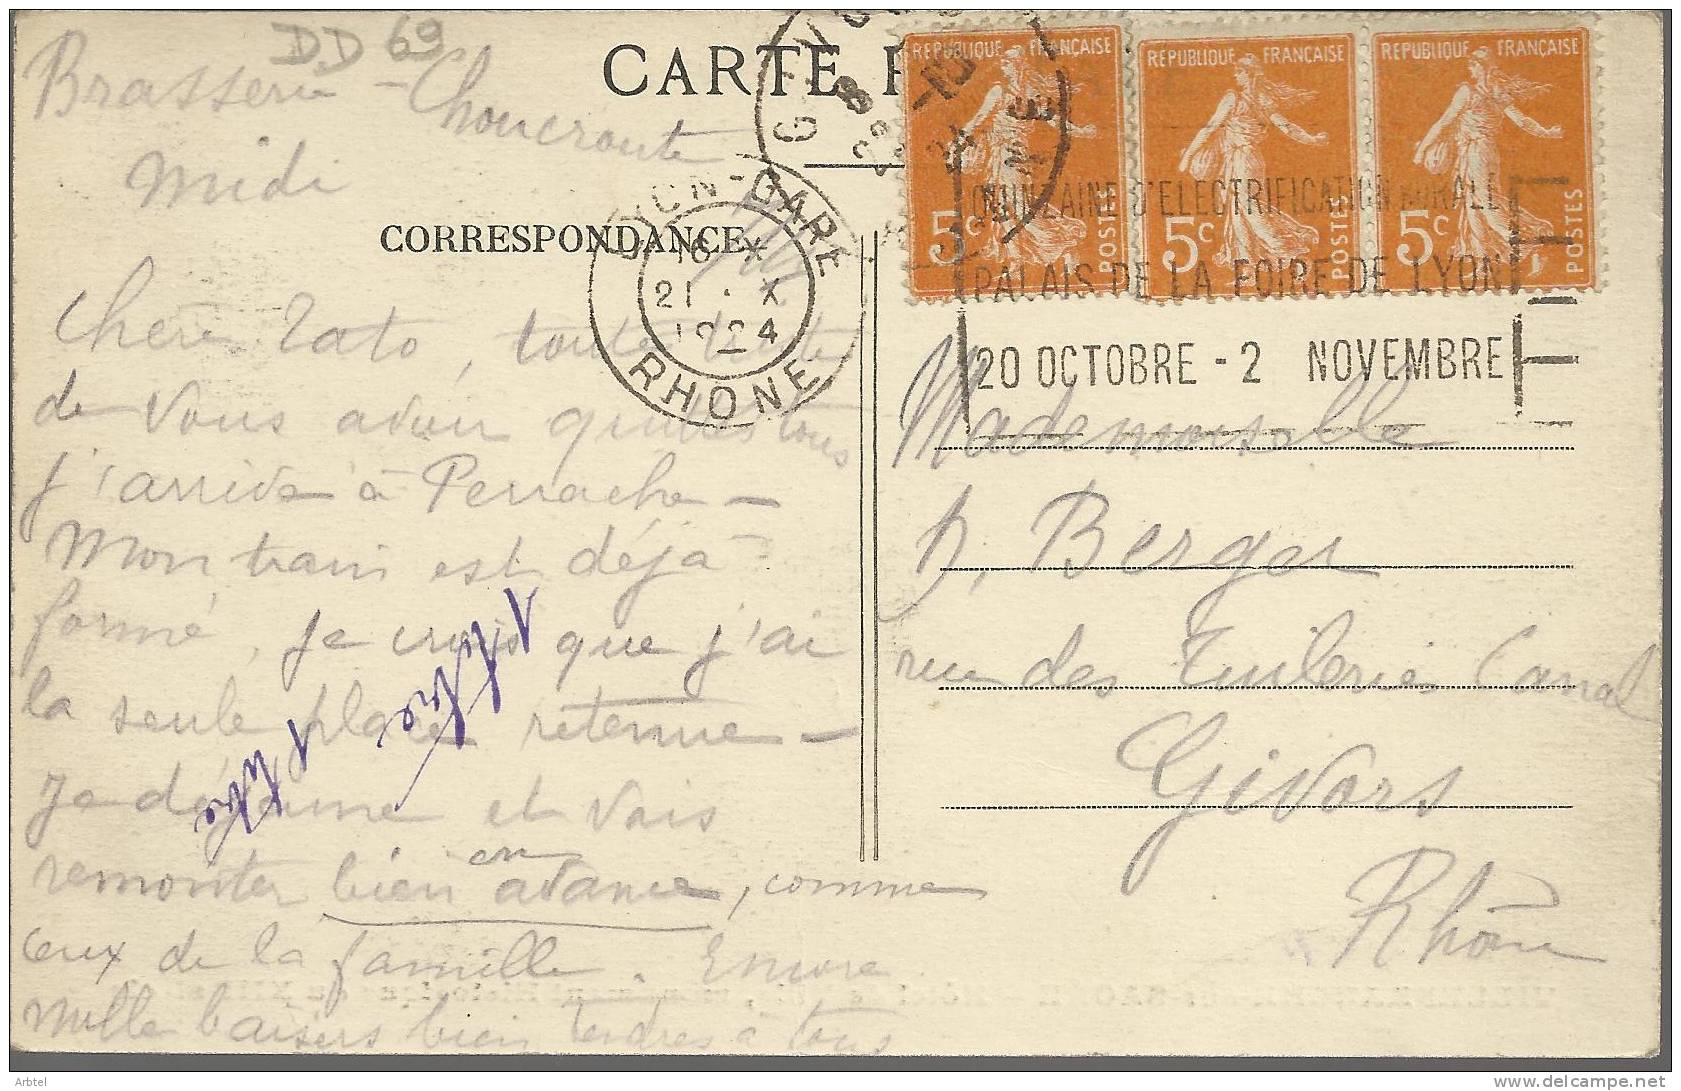 DD 69
Brasserie - Choucroute
Midi
CARTE
CORRESPONDANCE
Chère Tato, toute triste
de vous avoir quittés tous
j'arrive à Perrache -
Mon train est déjà
formé, je crois que j'ai
la seule place retenue -
Je déjeune et vais
remonter bien en avance, comme
ceux de la famille. Encore
mille baisers bien tendres à tous
LYON-GARE
16 *
21 . X
1924
RHONE
REPUBLIQUE FRANÇAISE
5c
POSTES
REPUBLIQUE FRANÇAISE
5c
POSTES
REPUBLIQUE FRANÇAISE
5c
POSTES
QUINZAINE D'ELECTRIFICATION RURALE
PALAIS DE LA FOIRE DE LYON
20 OCTOBRE - 2 NOVEMBRE
Mademoiselle
Berger
rue des Tuileries Canal
Givors
Rhône
Arbtel
delcampe.net